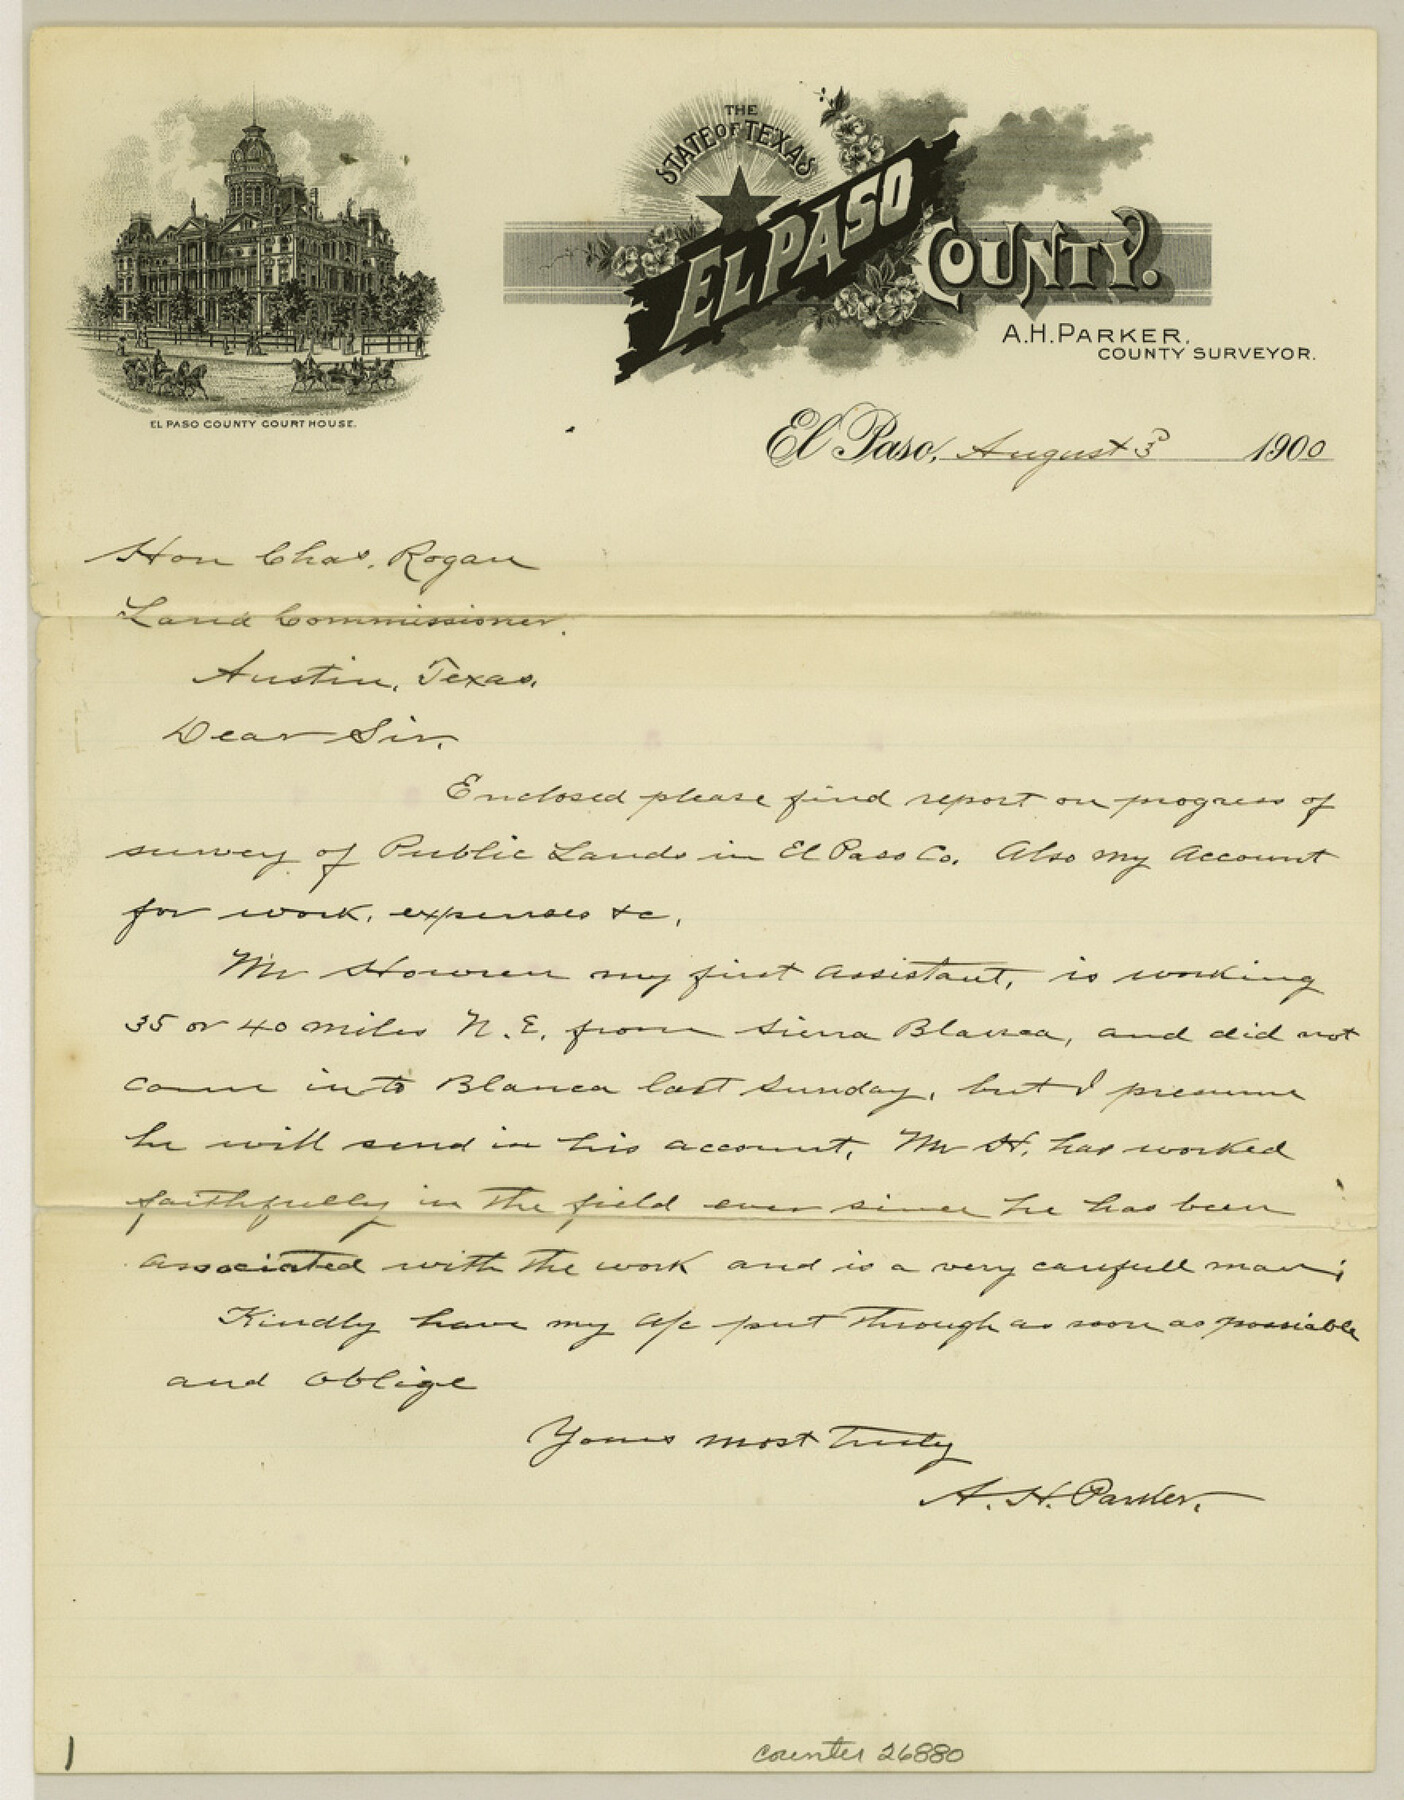 THE
STATE OF TEXAS
EL PASO
COUNTY.
A.H. PARKER,
COUNTY SURVEYOR.
EL PASO COUNTY COURT HOUSE.
El Paso, August 3 1900
Hon Chas. Rogan
Land Commissioner.
Austin, Texas.
Dear Sir.
Enclosed please find report on progress of
survey of Public Lands in El Paso Co. Also my Account
for work, expenses &c.
Mr Howren my first assistant, is working
35 or 40 miles N. E. from Sierra Blanca, and did not
come into Blanca last Sunday, but I presume
he will send in his account. Mr H. has worked
faithfully in the field ever since he has been
associated with the work and is a very carefull man;
Kindly have my a/c put through as soon as possiable
and oblige
Yours most truly
A. H. Parker.
1
counter 26880